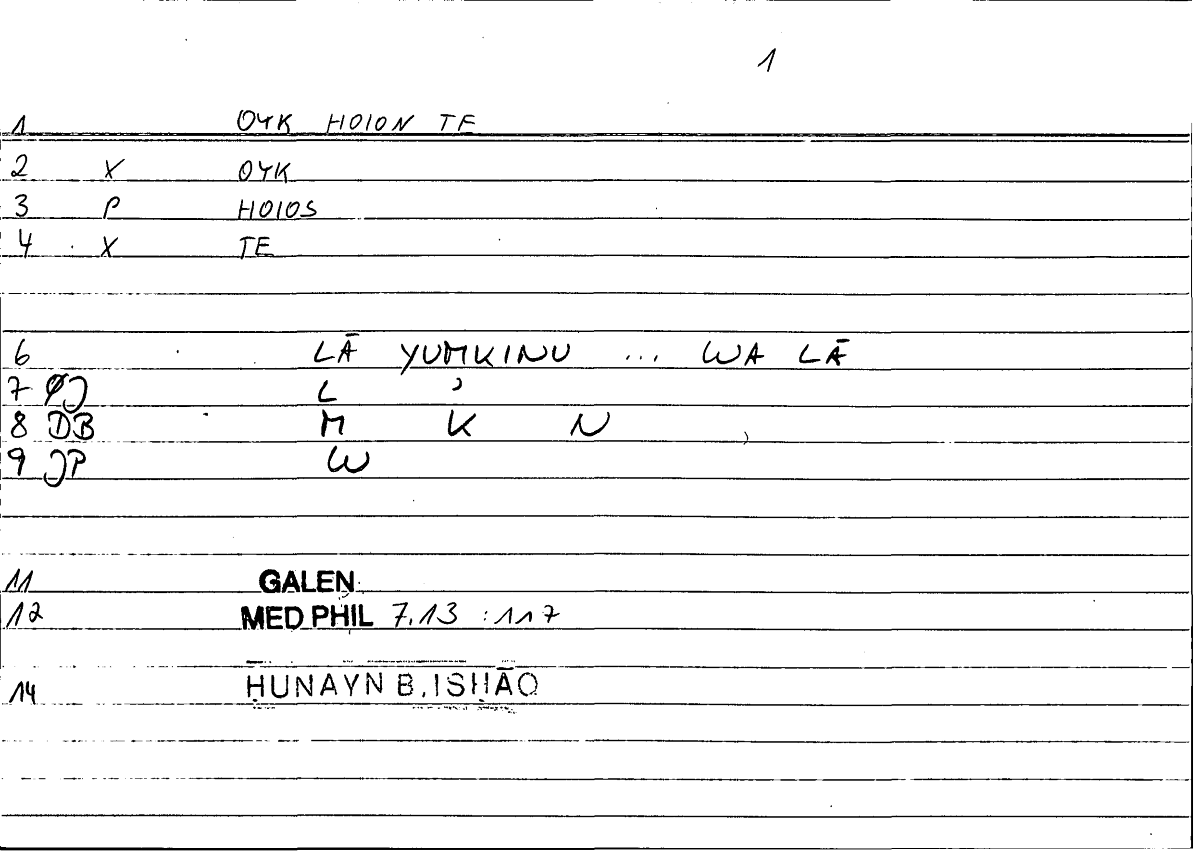 1
1 OYK HOION TE
2 X OYK
3 P HOIOS
4 X TE
6 LĀ YUMKINU ... WA LĀ
7 ØJ L ʾ
8 DB M K N
9 JP W
11 GALEN
12 MED PHIL 7.13 :117
14 ḤUNAYN B. ISḤĀQ